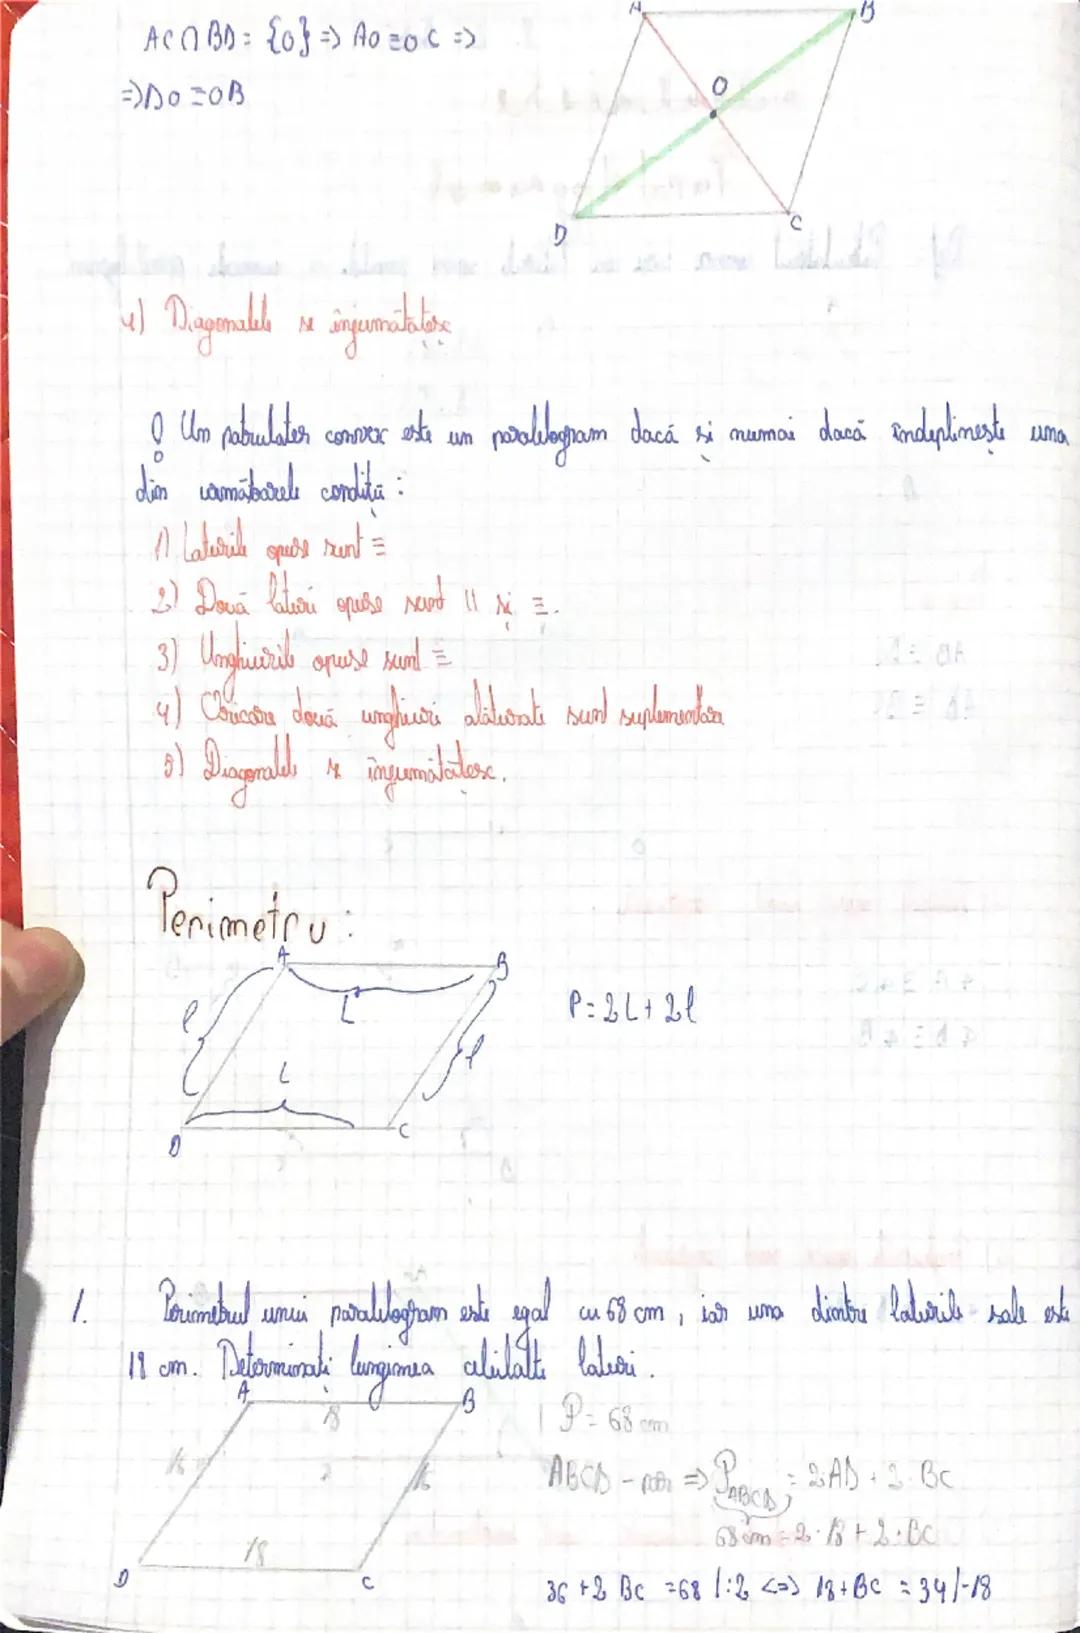 A
B
AC ∩ BD = {O} => AO ≡ OC =>
O
=> DO ≡ OB
D
C
4) Diagonalele se înjumătățesc
! Un patrulater convex este un paralelogram dacă și numai dacă îndeplinește una
din următoarele condiții :
1) Laturile opuse sunt ≡
2) Două laturi opuse sunt || și ≡.
3) Unghiurile opuse sunt ≡
4) Oricare două unghiuri alăturate sunt suplementare
5) Diagonalele se înjumătățesc.
Perimetru :
A
B
l
L
P = 2L + 2l
L
l
D
C
1. Perimetrul unui paralelogram este egal cu 68 cm, iar una dintre laturile sale este
18 cm. Determinați lungimea celeilalte laturi.
A
B
18
P = 68 cm
16
16
ABCD - par => P ABCD = 2AD + 2·BC
18
68 cm = 2·18 + 2·BC
D
C
36 + 2 BC = 68 |:2 <=> 18 + BC = 34 |-18